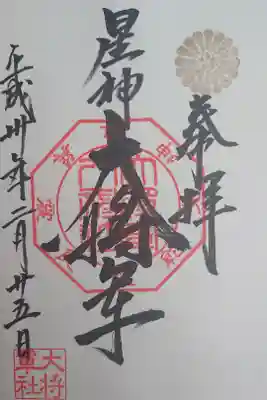 奉拝
星神大将軍
平成卅年二月廿五日
大将軍社